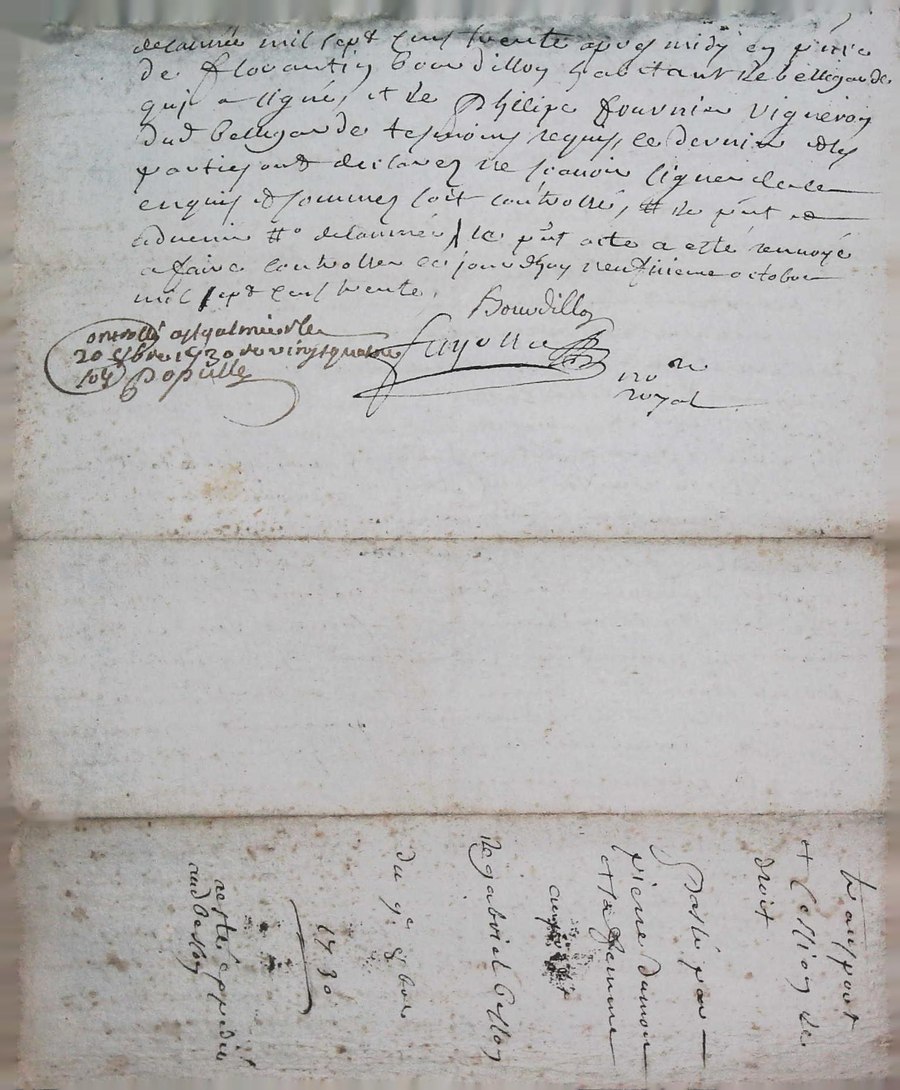 de l'année mil sept cens trente apres midy en p̃nce
de florantin bourdillon habitant de bellegarde
qui a signé, et de Philipe fournier vigneron
dud bellegarde tesmoins requis, ce dernier et les
parties ont declarez ne scavoir signer de ce
enquis et sommez soit controllé, # le p̃nt et
advenir #o de l'année / le p̃nt acte a esté renvoyé
a faire controller ce jourdhuy neufvieme octobre
mil sept cens trente.
Bourdillon
controllé a st galmier le
20 8bre 1730 re vingt quatre
sols Populle
no re
royal
transport
et cession de
droit
Passé par
pierre dumon
et sa femme
au proffit
de gabriel besson
du 9e 8bre
1730
resté expedié
aud besson